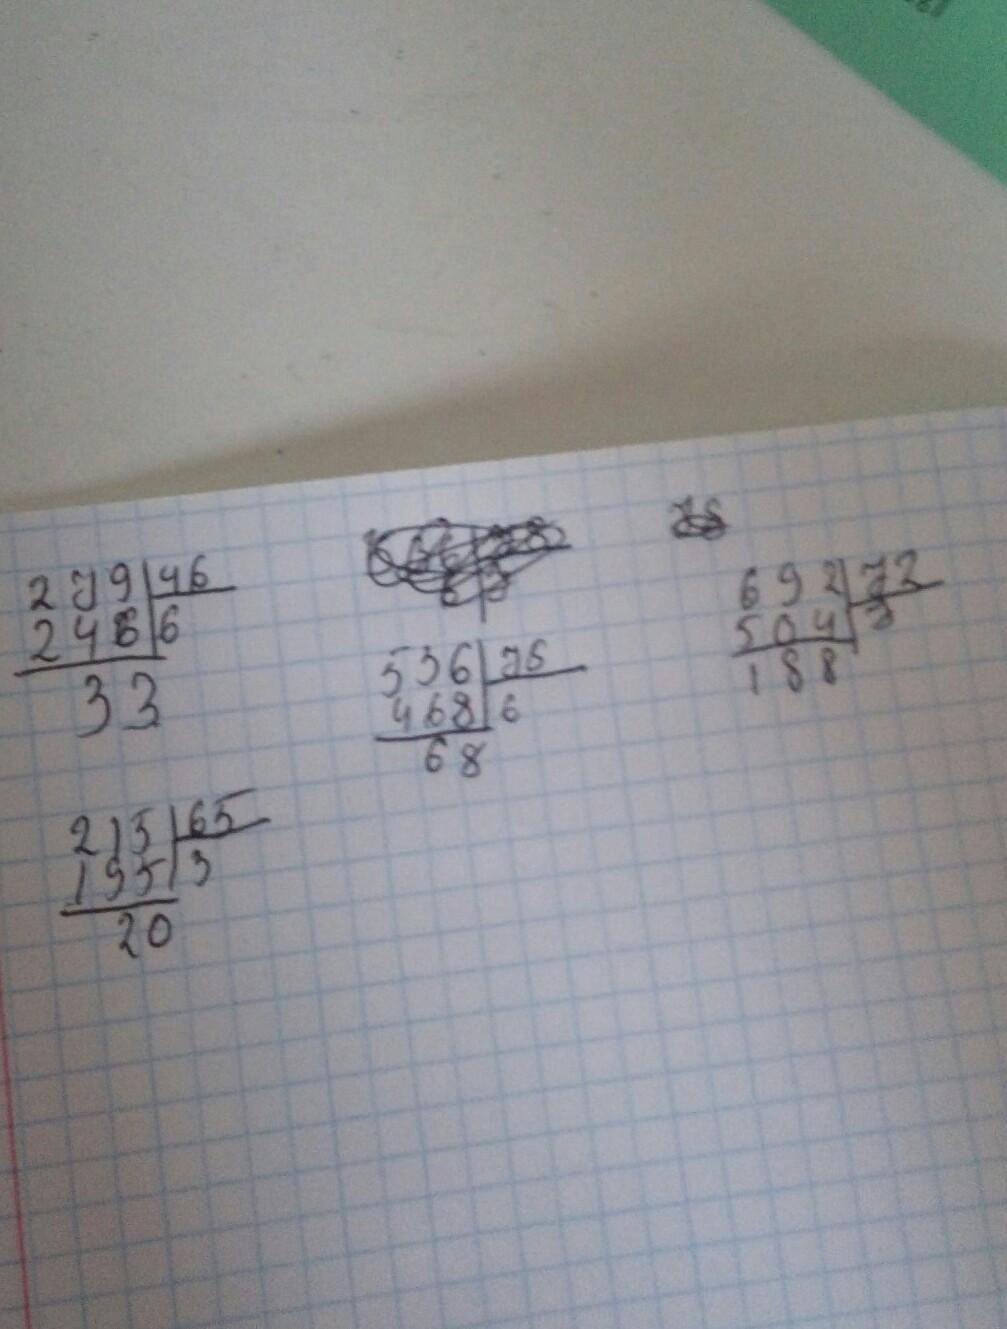 279 46
246 6
33
536 76
468 6
68
692 72
504
188
215 65
195 3
20